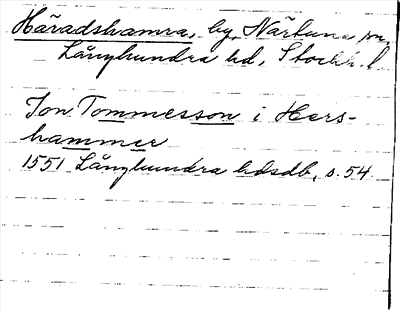 Häradshamra, by, Närtuna sn.
Långhundra hd, Stockh. l
Jon Tommesson i Hers-
hammer
1551 Långhundra hdsdb, s. 54